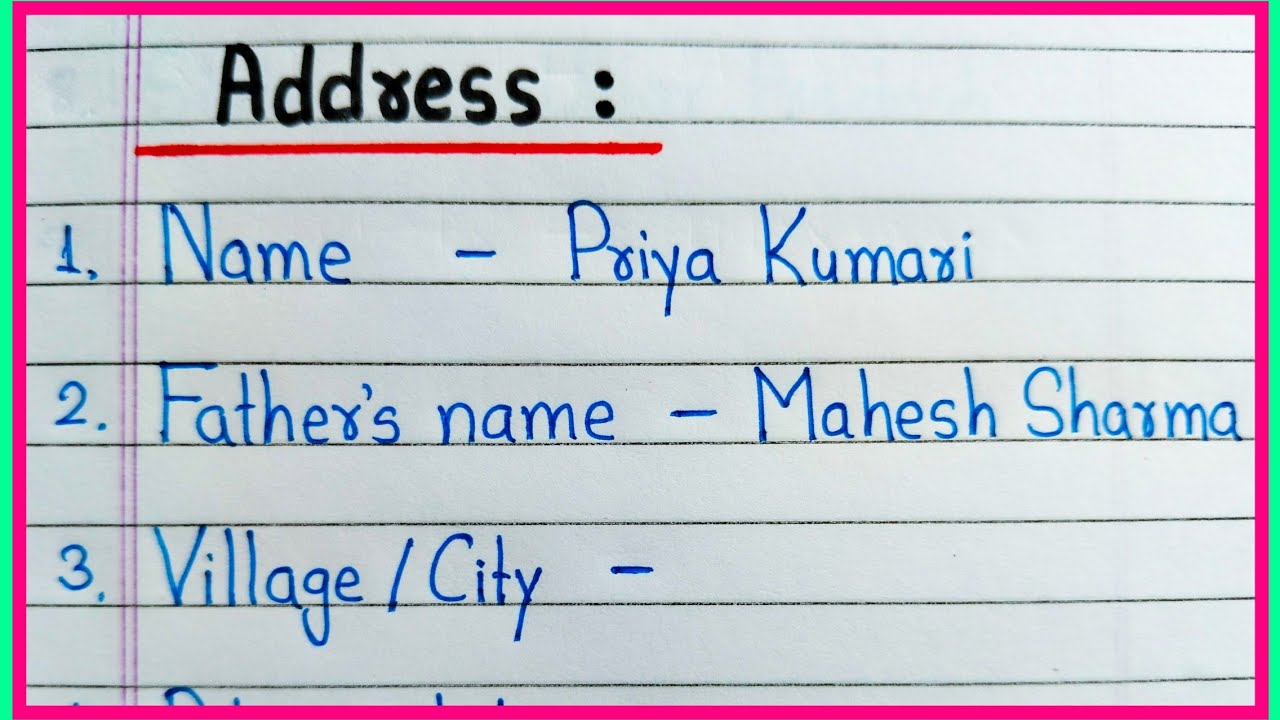 Address :
1. Name - Priya Kumari
2. Father's name - Mahesh Sharma
3. Village / City -